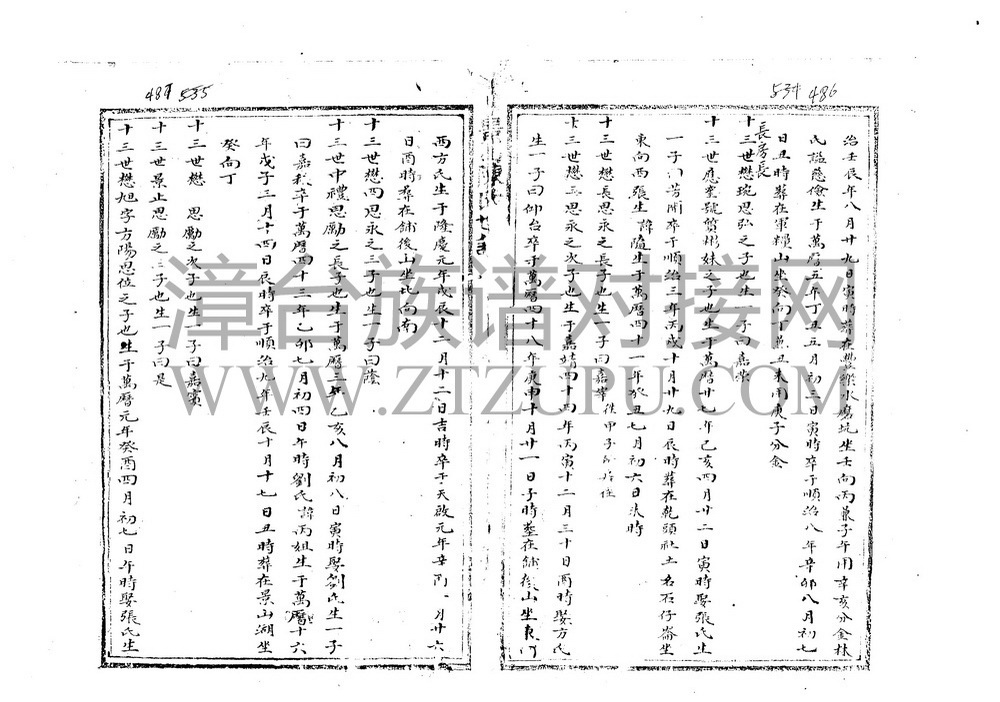 534 486
治壬辰年八月廿九日寅時葬在豐樂水磨坑坐壬向丙兼子午用辛亥分金林
氏謚慈儉生于萬曆五年丁丑五月初二日寅時卒于順治八年辛卯八月初七
日丑時葬在軍糧山坐癸向丁兼丑未用庚子分金
長房長
十三世懋琬思弘之子也生一子曰嘉崇
十三世應奎號質彬妹之子也生于萬曆廿七年己亥四月廿二日寅時娶張氏生
一子 芳開卒于順治三年丙戌十月廿九日辰時葬在乾頭社土名石仔崙坐
東向西張生諱隨生于萬曆四十一年癸丑七月初六日未時
十三世懋長思永之長子也生一子曰嘉
十三世懋玉思永之次子也生于嘉靖四十四年丙寅十二月三十日酉時娶方氏
生一子曰仰台卒于萬曆四十八年庚申十月廿一日子時塟在舖後山坐東
487 535
西方氏生于隆慶元年戊辰十二月十二日吉時卒于天啟元年辛 月廿六
日酉時塟在舖後山坐北向南
十三世懋四思永之三子也生一子曰隆
十三世中禮思勵之長子也生于萬曆三年乙亥八月初八日寅時娶劉氏生一子
曰嘉 卒于萬曆四十三年乙卯七月初四日午時劉氏諱丙姐生于萬曆十六
年戊子三月十四日辰時卒于順治九年壬辰十月十七日丑時葬在景山湖坐
癸向丁
十三世懋 思勵之次子也生一子曰嘉賓
十三世景止思勵之三子也生一子曰是
十三世懋旭字方陽思位之子也生于萬曆元年癸酉四月初七日午時娶張氏生
漳台族谱对接网
WWW.ZTZUPU.COM